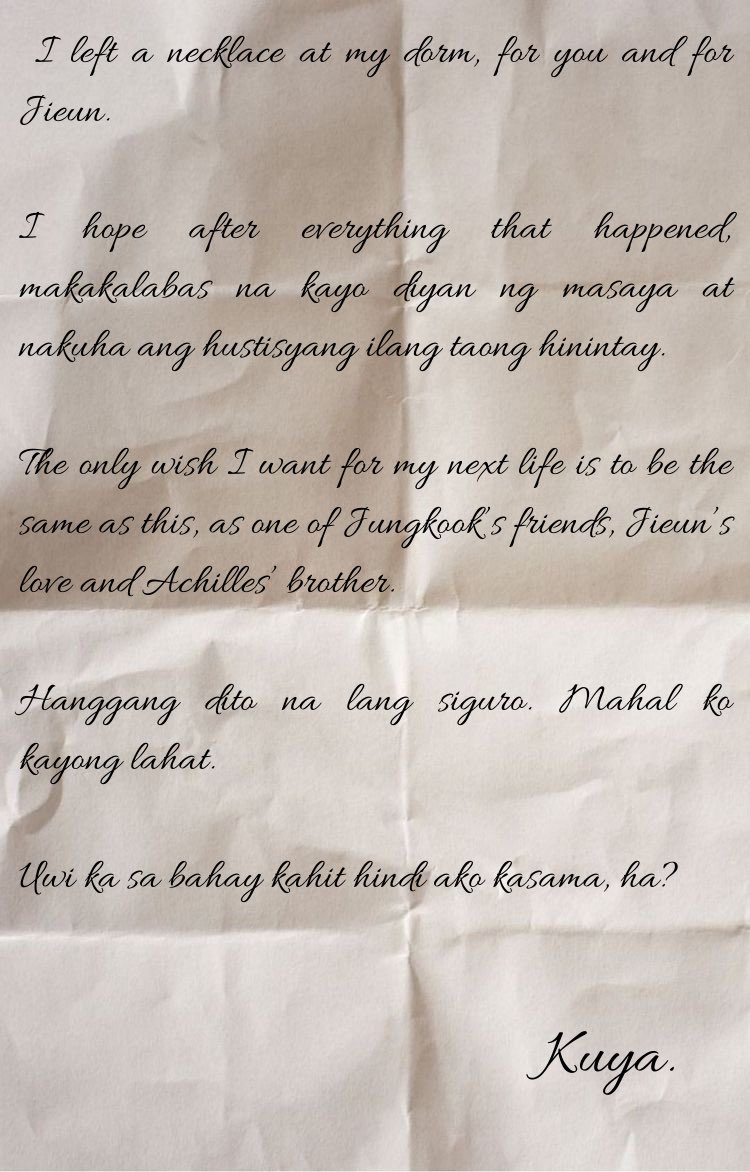 I left a necklace at my dorm, for you and for
Jieun.
I hope after everything that happened,
makakalabas na kayo diyan ng masaya at
nakuha ang hustisyang ilang taong hinintay.
The only wish I want for my next life is to be the
same as this, as one of Jungkook's friends, Jieun's
love and Achilles' brother.
Hanggang dito na lang siguro. Mahal ko
kayong lahat.
Uwi ka sa bahay kahit hindi ako kasama, ha?
Kuya.